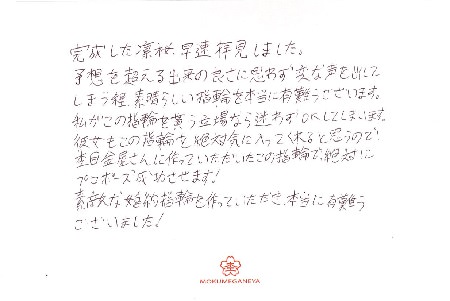 完成した凛桜、早速拝見しました。
予想を超える出来の良さに思わず変な声を出して
しまう程、素晴らしい指輪を本当に有難うございます。
私がこの指輪を貰う立場なら迷わずOKしてしまいます。
彼女もこの指輪を絶対気に入ってくれると思うので
杢目金屋さんに作っていただいたこの指輪で絶対に
プロポーズ成功させます!
素敵な婚約指輪を作っていただき、本当に有難う
ございました!
MOKUMEGANEYA